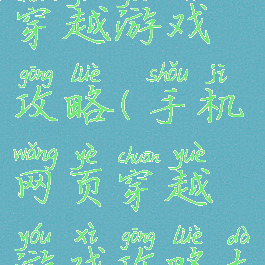 穿越游戏
gōng lüè shǒu jī
攻略(手机
wǎng yè chuān yuè
网页穿越
yóu xì gōng lüè dà
游戏攻略大